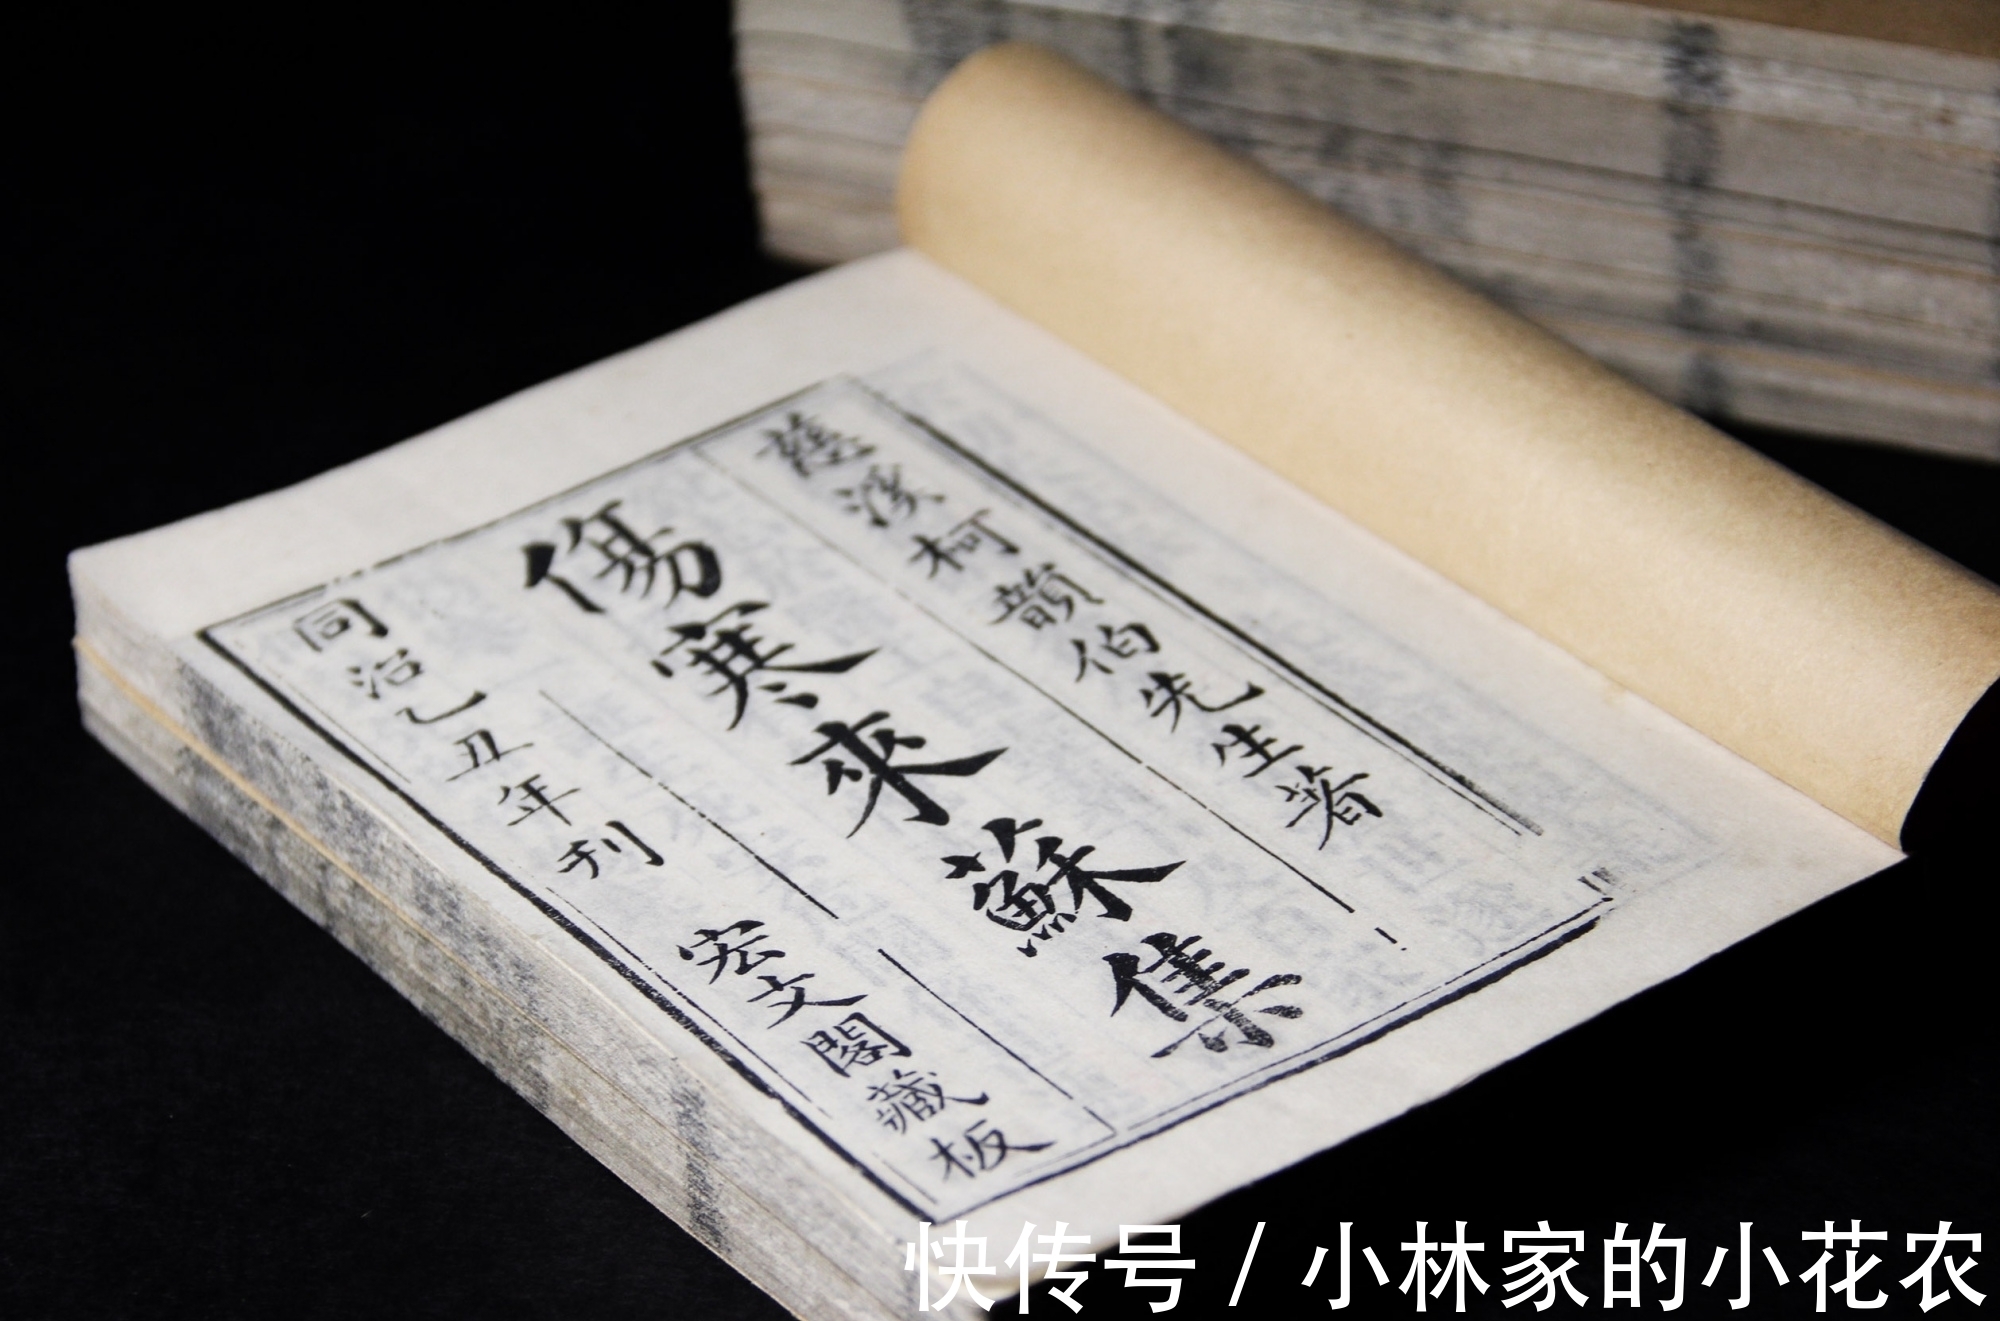 慈溪柯韻伯先生著
傷寒來蘇集
同治乙丑年刊
宏文閣藏板
快传号 / 小林家的小花农